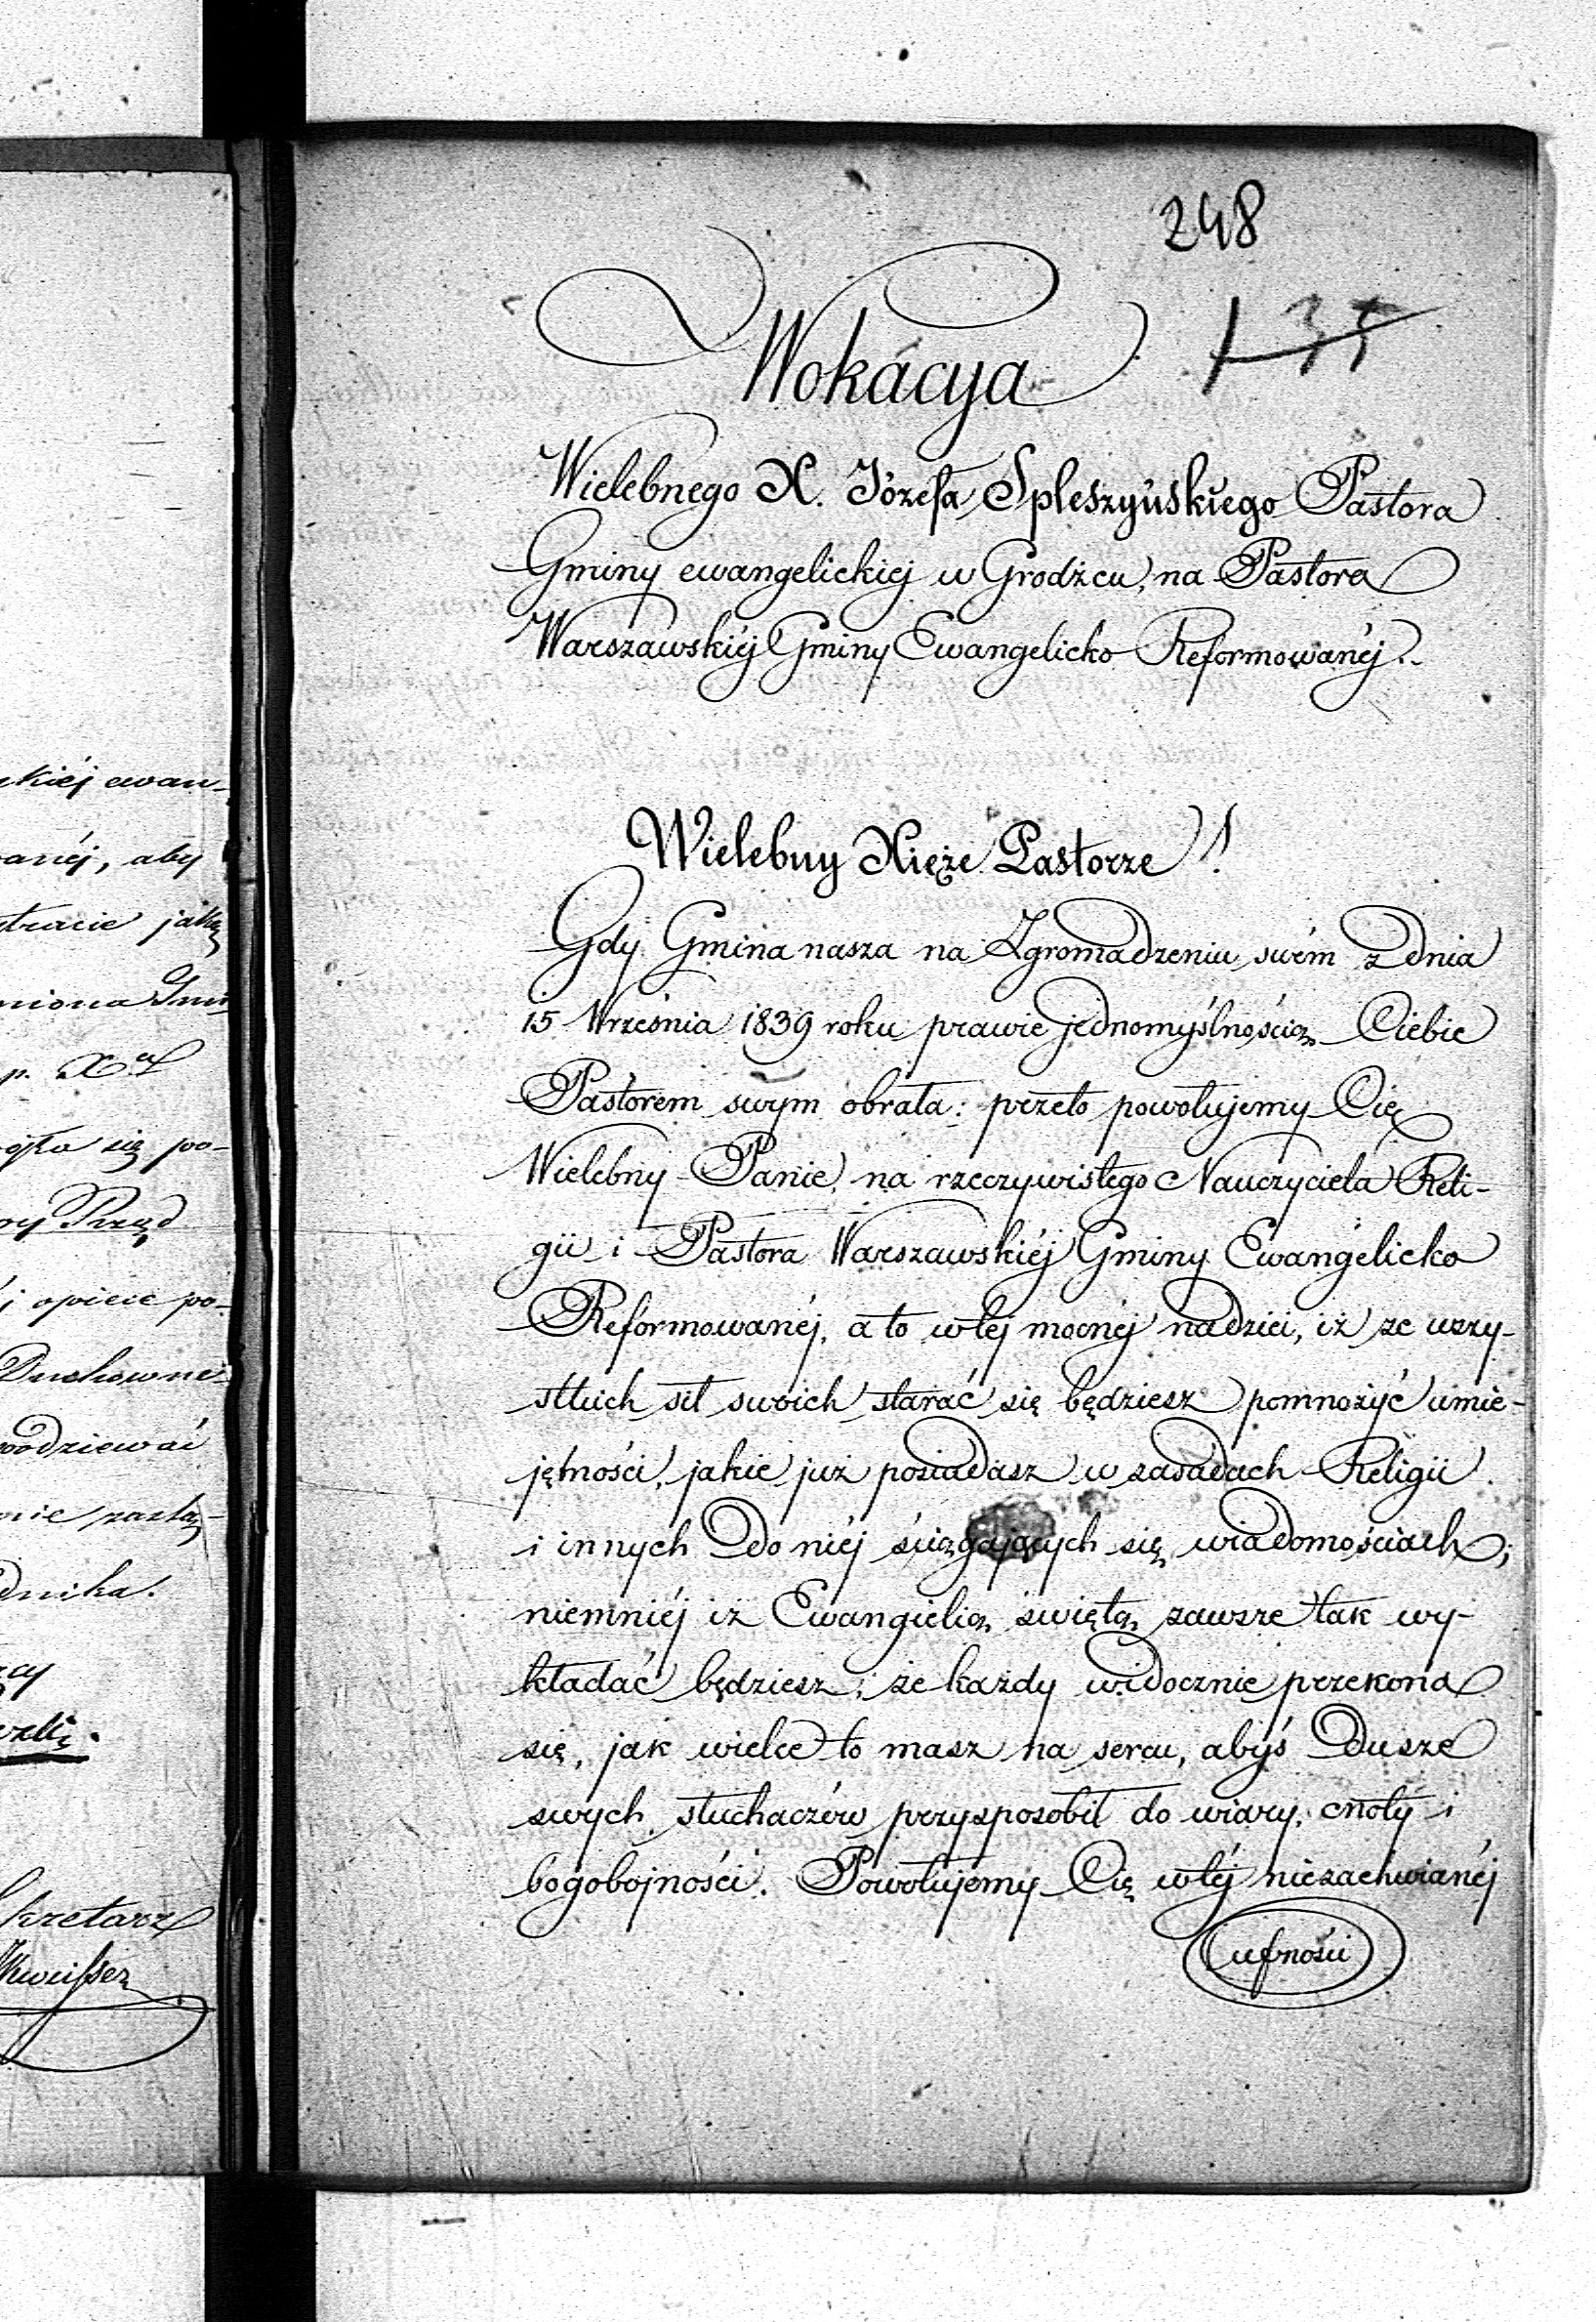 248
135
Wokacya
Wielebnego X. Józefa Spleszyńskiego Pastora
Gminy ewangelickiej w Grodźcu, na Pastora
Warszawskiéj Gminy Ewangelicko Reformowanéj.
Wielebny Xięże Pastorze!
Gdy Gmina nasza na Zgromadzeniu swém z dnia
15 Września 1839 roku prawie jednomyślnością Ciebie
Pastorem swym obrała: przeto powołujemy Cię
Wielebny Panie, na rzeczywistego Nauczyciela Reli-
gii i Pastora Warszawskiéj Gminy Ewangelicko
Reformowanéj, a to w tej mocnéj nadziei, iż ze wszy-
stkich sił swoich starać się będziesz pomnożyć umie-
jętności, jakie już posiadasz w zasadach Religii
i innych do niéj ściągających się wiadomościach;
niemniéj iż Ewangielią świętą zawsze tak wy-
kładać będziesz, że każdy widocznie przekona
się, jak wielce to masz na sercu, abyś Dusze
swych słuchaczów przysposobił do wiary, cnoty i
bogobojności. Powołujemy Cię w téj niezachwianéj
ufności
kiéj ewan-
anéj, aby
tracie jaką
p. X
się po-
opiece po-
Duchowne
dnika.
kretarz